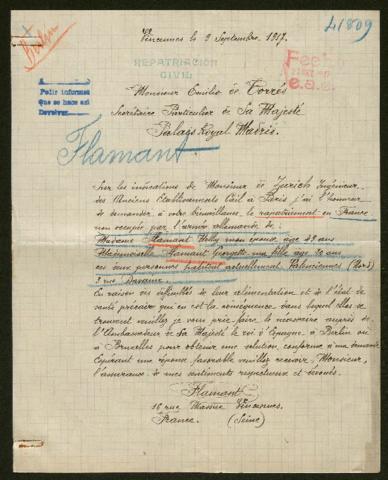 41809
Vincennes le 9 Septembre 1917.
REPATRIACIÓN
CIVIL
A
Pedir informes
Que se hace así
Devolver
Monsieur Emilio de Torrés
Secrétaire Particulier de Sa Majesté
Palais Royal Madrid.
Flamant.
Sur les indications de Monsieur de Ingénieur
des Anciens Etablissements Cail à Paris j'ai l'honneur
de demander à votre bienveillance, le rapatriement en France
non occupée par l'armée allemande de:
Madame Flamant Nelly mon épouse, âgé 49 ans
Mademoiselle Flamant Georgette ma fille âgé ans
ces deux personnes habitent actuellement Valenciennes (Nord)
2 rue
En raison des difficultés de leur alimentation et de l'état de
santé précaire qui en est la conséquence dans lequel elles se
trouvent veuillez je vous prie faire le nécessaire auprès de
l'Ambassadeur de Sa Majesté le roi d'Espagne à Berlin ou
à Bruxelles pour obtenir une solution conforme à ma demande
Espérant une réponse favorable veuillez recevoir, Monsieur,
l'assurance de mes sentiments respectueux et dévoués.
Flamant
16 rue Massue Vincennes.
France. (Seine)